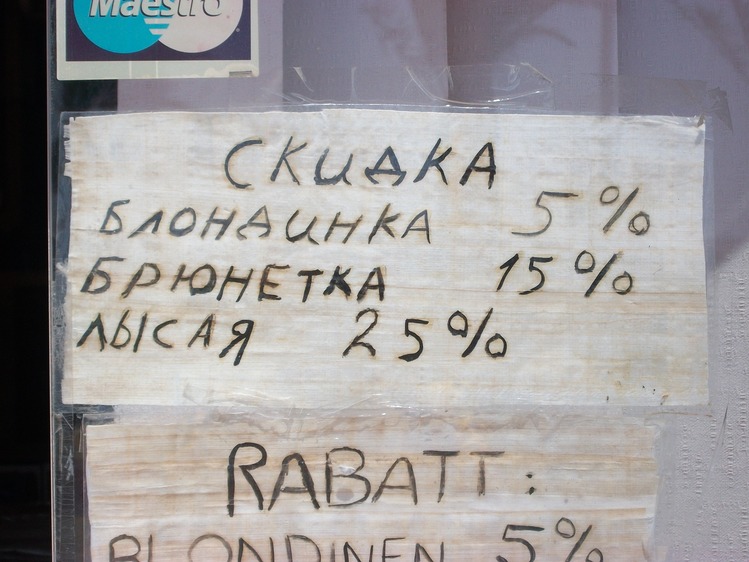 Maestro
СКИДКА
БЛОНДИНКА 5%
БРЮНЕТКА 15%
ЛЫСАЯ 25%
RABATT:
BLONDINEN 5%